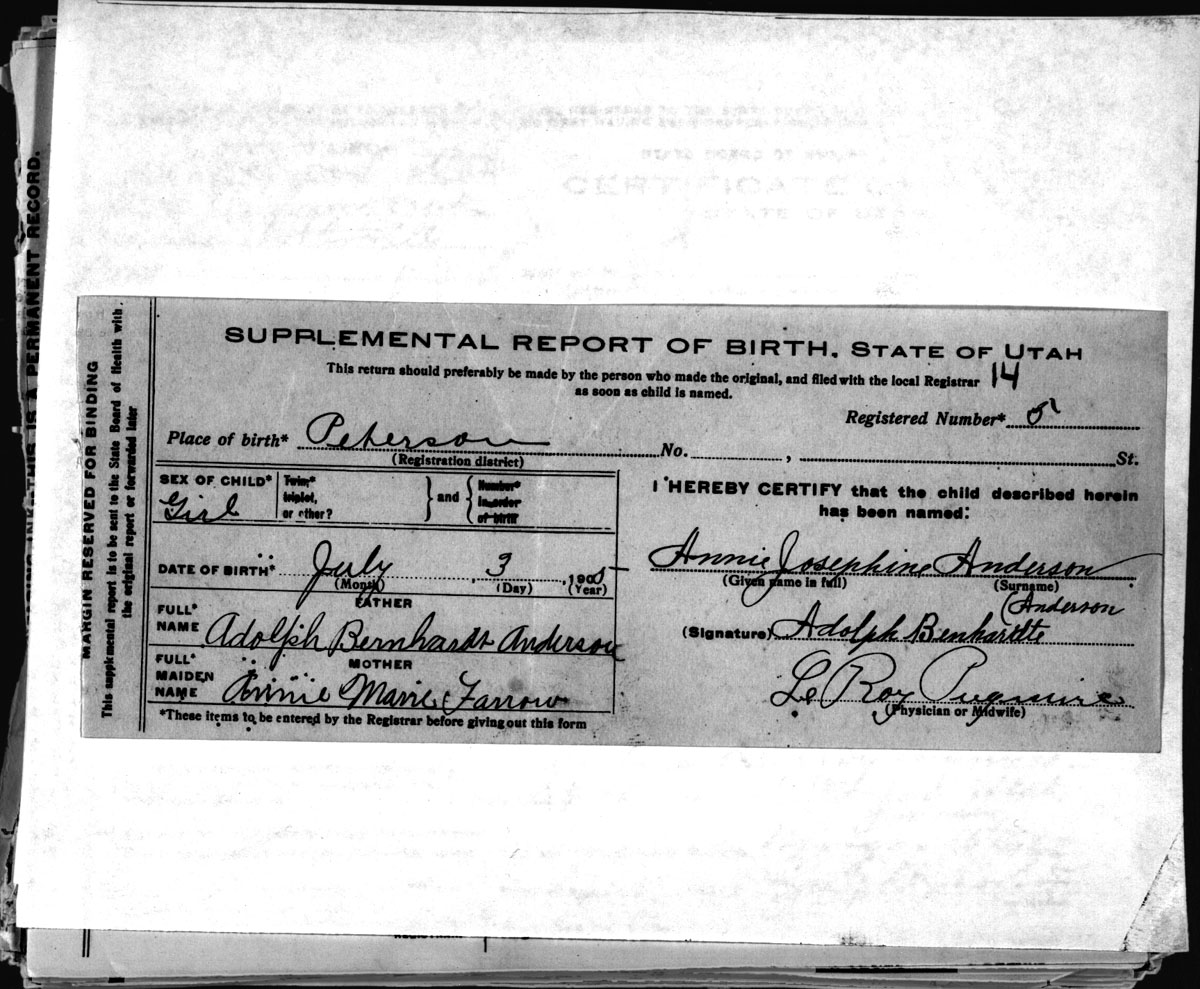 SUPPLEMENTAL REPORT OF BIRTH, STATE OF UTAH
This return should preferably be made by the person who made the original, and filed with the local Registrar 14
as soon as child is named.
Registered Number* 5
Place of birth* Peterson No. , St.
(Registration district)
SEX OF CHILD* Girl
Twin*
triplet,
or other?
and
Number*
in order
of birth
DATE OF BIRTH* July 3, 190
(Month) (Day) (Year)
FATHER
FULL* NAME Adolph Bernhardt Anderson
MOTHER
FULL* MAIDEN NAME Annie Marie Farrow
*These items to be entered by the Registrar before giving out this form
I HEREBY CERTIFY that the child described herein
has been named:
Annie Josephine Anderson
(Given name in full) (Surname)
(Anderson
(Signature) Adolph Benhardtte
Le Roy Pugmire
(Physician or Midwife)
MARGIN RESERVED FOR BINDING
This supplemental report is to be sent to the State Board of Health with
the original report or forwarded later
THIS IS A PERMANENT RECORD.